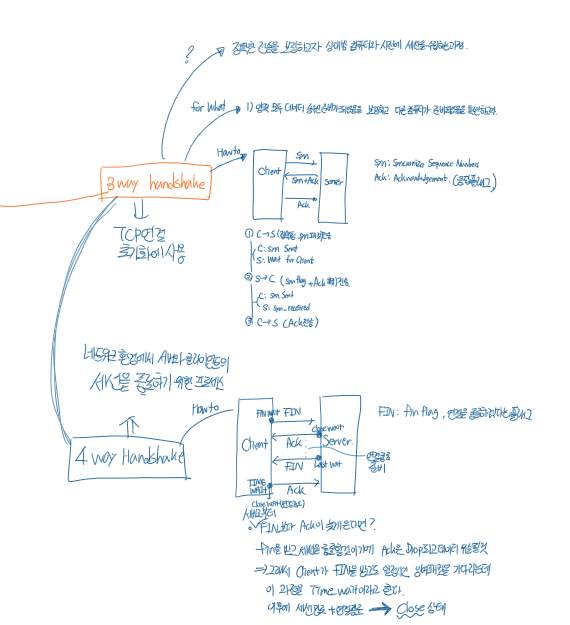 ?
정확한 전송을 보장하고자 상대방 컴퓨터와 사전에 세션을 수립하는 과정.
for What
1) 양쪽 모두 데이터 송수신 준비가 되었음을 보장하고 다른 컴퓨터가 준비되었음을 확인하고자.
How to
3way handshake
TCP연결
초기화에 사용
Client
Syn
Syn+Ack
Ack
Server
Syn: Syncronize Sequence Numbers
Ack: Acknowledgement. (응답플래그)
① C→S (접속요청 Syn패킷전송)
C: Syn Sent
S: Wait for Client
② S→C (Syn flag + Ack 패킷전송)
C: Syn Sent
S: Syn_received
③ C→S (Ack전송)
네트워크 환경에서 서버와 클라이언트의
세션을 종료하기 위한 프로세스
4 way Handshake
How to
Client
Server.
FIN wait FIN
Close wait
Ack
FIN
Last wait
TIME
wait
Ack
Close wait(연결종료)
연결종료
준비
FIN: fin flag, 연결을 종료하겠다는 플래그
서버로부터
FIN보다 Ack이 늦게온다면?
fin을 받고 세션을 종료할것이기에 Ack은 Drop되고 데이터 유실될것
⇒ 그래서 Client가 FIN을 받고도 일정시간 잉여패킷을 기다리는데
이 과정을 Time wait이라고 한다.
이후에 세션만료 + 연결종료 → Close 상태